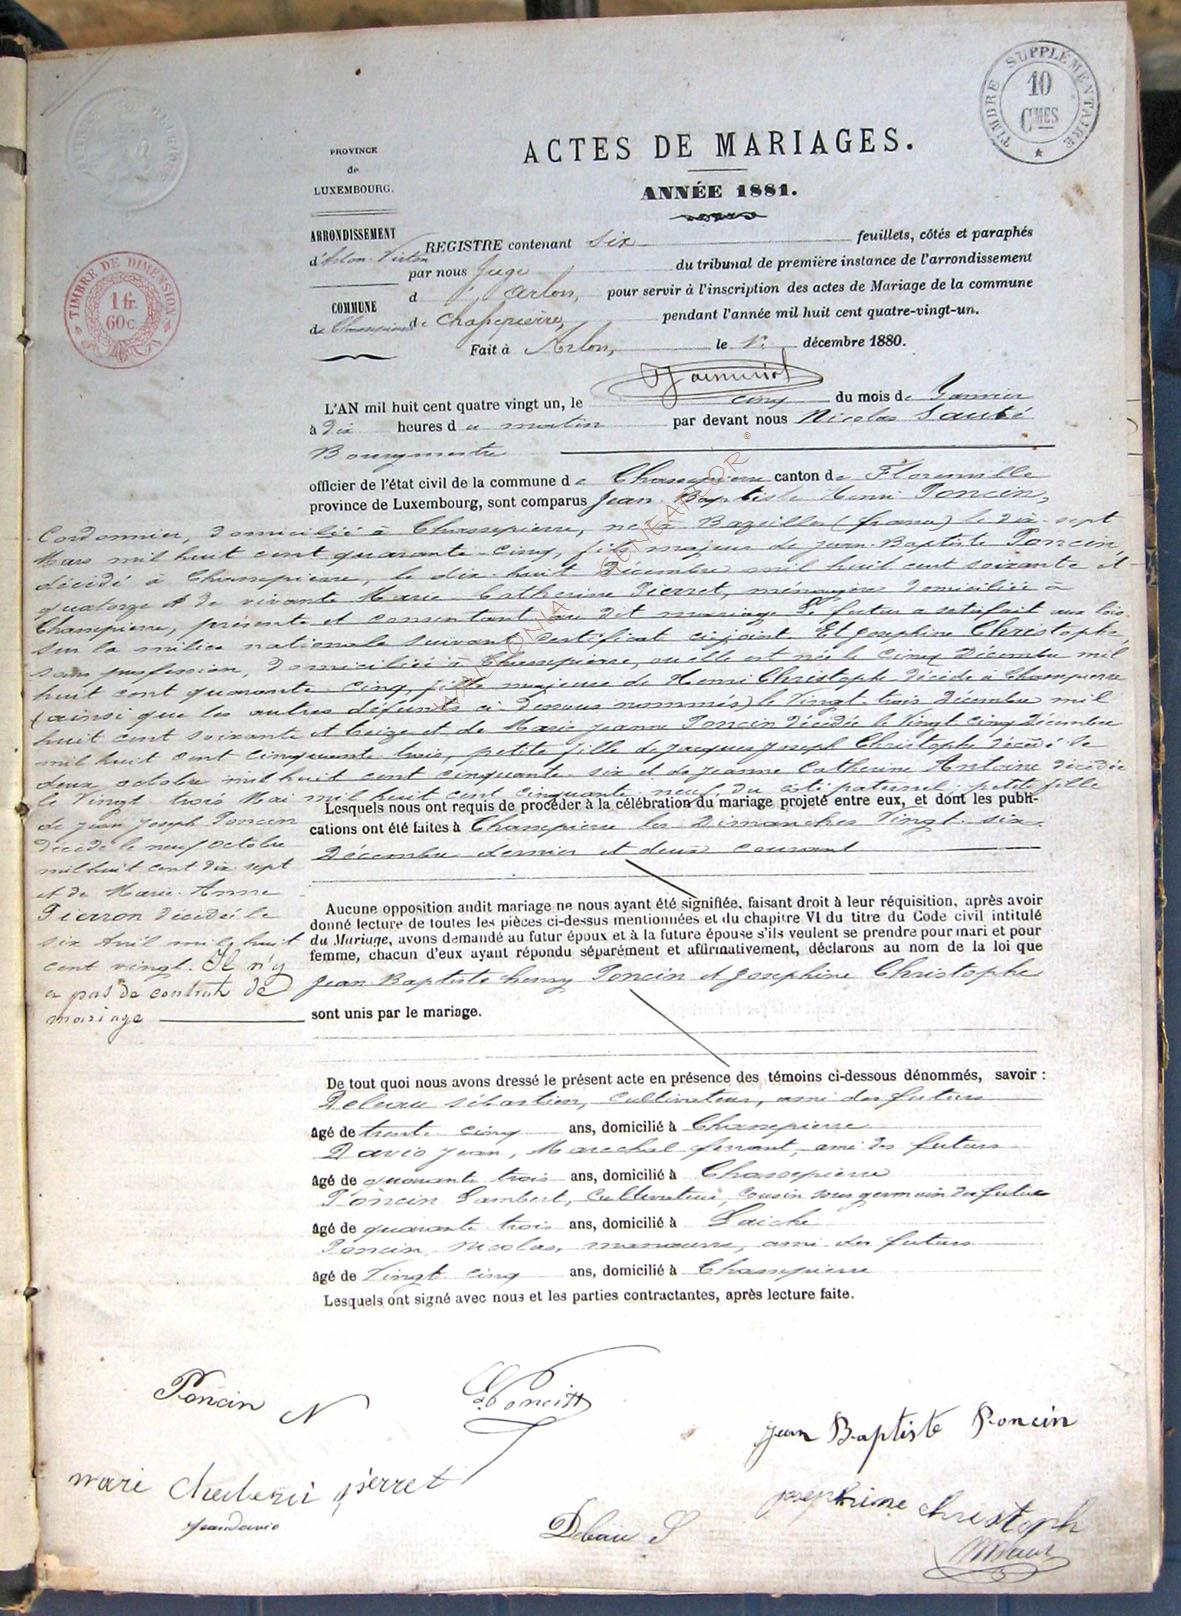 TIMBRE SUPPLÉMENTAIRE
10
Cmes
TIMBRE DE DIMENSION
1 fr.
60 c.
PROVINCE
de
LUXEMBOURG.
ACTES DE MARIAGES.
ANNÉE 1881.
ARRONDISSEMENT
d'Arlon-Virton
COMMUNE
de Chassepierre
REGISTRE contenant six feuillets, côtés et paraphés
par nous Juge du tribunal de première instance de l'arrondissement
d'Arlon, pour servir à l'inscription des actes de Mariage de la commune
de Chassepierre, pendant l'année mil huit cent quatre-vingt-un.
Fait à Arlon, le 1r décembre 1880.
L'AN mil huit cent quatre vingt un, le cinq du mois de Janvier
à dix heures du matin par devant nous Nicolas Sauté
Bourgmestre
officier de l'état civil de la commune de Chassepierre canton de Florenville
province de Luxembourg, sont comparus Jean Baptiste Henri Poncin,
Cordonnier, domicilié à Chassepierre, né à Bazeilles (france) le dix sept
Mars mil huit cent quarante-cinq, fils majeur de Jean-Baptiste Poncin,
décédé à Chassepierre, le dix-huit Décembre mil huit cent soixante et
quatorze et de vivante Marie Catherine Pierret, ménagère domiciliée à
Chassepierre, présente et consentant au dit mariage. Le futur a satisfait aux lois
sur la milice nationale suivant certificat ci-joint. Et Joséphine Christophe,
sans profession, domiciliée à Chassepierre, où elle est née le cinq Décembre mil
huit cent quarante cinq, fille majeure de Henri Christophe décédé à Chassepierre
(ainsi que les autres défunts ci-dessous nommés) le Vingt-trois Décembre mil
huit cent soixante et treize et de Marie Jeanne Poncin décédée le Vingt cinq Décembre
mil huit cent cinquante trois, petite fille de Jacques Joseph Christophe décédé le
deux octobre mil huit cent cinquante-six et de Jeanne Catherine Antoine décédée
le Vingt trois Mai mil huit cent cinquante-neuf du côté paternel; petite fille
de Jean Joseph Poncin
décédé le neuf octobre
mil huit cent dix sept
et de Marie-Anne
Pierron décédée le
six Avril mil huit
cent vingt. Il n'y
a pas de contrat de
mariage
Lesquels nous ont requis de procéder à la célébration du mariage projeté entre eux, et dont les publi-
cations ont été faites à Chassepierre les Dimanches Vingt-six
Décembre dernier et deux courant
Aucune opposition audit mariage ne nous ayant été signifiée, faisant droit à leur réquisition, après avoir
donné lecture de toutes les pièces ci-dessus mentionnées et du chapitre VI du titre du Code civil intitulé
du Mariage, avons demandé au futur époux et à la future épouse s'ils veulent se prendre pour mari et pour
femme, chacun d'eux ayant répondu séparément et affirmativement, déclarons au nom de la loi que
Jean Baptiste henry Poncin et Joséphine Christophe
sont unis par le mariage.
De tout quoi nous avons dressé le présent acte en présence des témoins ci-dessous dénommés, savoir :
Debeau Sébastien, cultivateur, ami des futurs
âgé de trente cinq ans, domicilié à Chassepierre
Davio Jean, Maréchal ferrant, ami des futurs
âgé de quarante trois ans, domicilié à Chassepierre
Poncin Lambert, cultivateur, cousin sous germain du futur
âgé de quarante trois ans, domicilié à Laiche
Poncin Nicolas, manœuvre, ami des futurs
âgé de Vingt cinq ans, domicilié à Chassepierre
Lesquels ont signé avec nous et les parties contractantes, après lecture faite.
Poncin N
L Poncin
jean Baptiste Poncin
mari pierret
josephine christoph
jean davio
Debeau S
WALLONIA GENEALOR ©